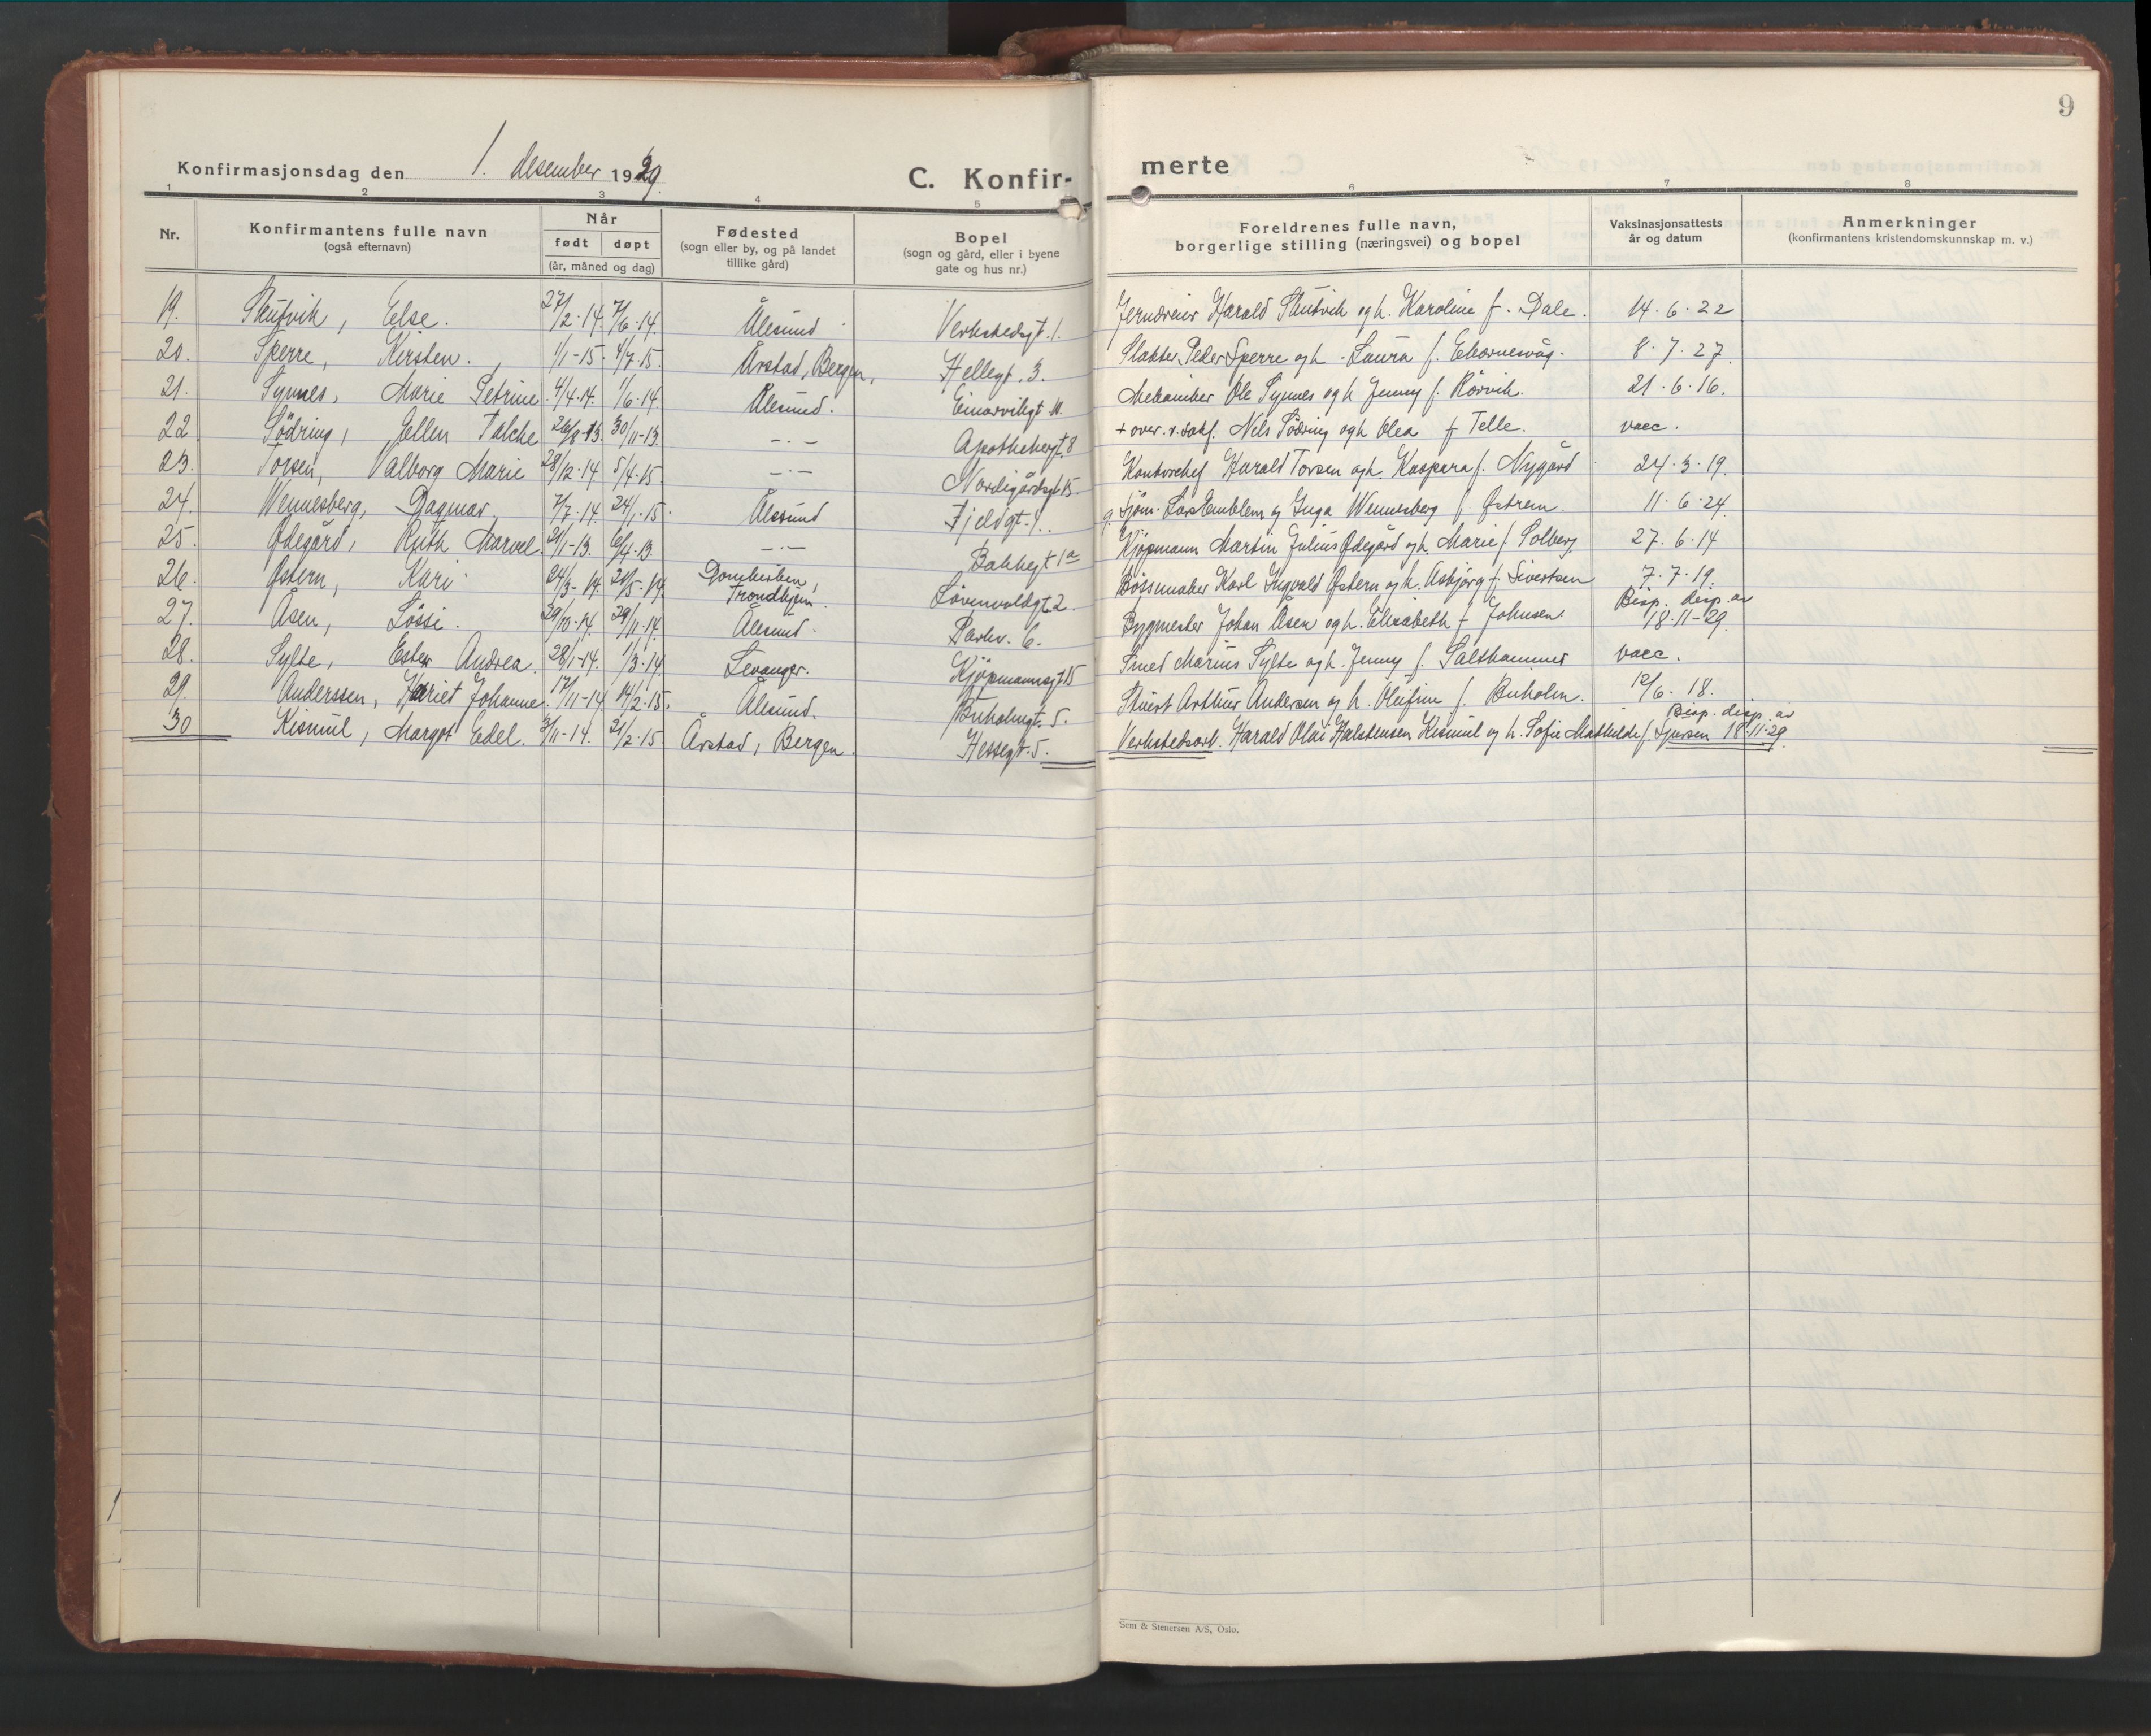 9
Konfirmasjonsdag den 1. desember 1929.
C. Konfir-
merte
1 2 3 4 5 6 7 8
Nr.
Konfirmantens fulle navn
(også efternavn)
Når
født døpt
(år, måned og dag)
Fødested
(sogn eller by, og på landet
tillike gård)
Bopel
(sogn og gård, eller i byene
gate og hus nr.)
Foreldrenes fulle navn,
borgerlige stilling (næringsvei) og bopel
Vaksinasjonsattests
år og datum
Anmerkninger
(konfirmantens kristendomskunnskap m. v.)
19. Skutvik, Else. 27/2-14. 7/6-14. Ålesund Verkstedsgt. 1. Jerndreier Harald Skutvik og h. Karoline f. Dale. 14.6.22
20. Sperre, Kirsten. 1/1-15. 4/7-15. Årstad, Bergen, Hellegt. 3. Slakter Peder Sperre og h. Laura f. Ekornesvåg. 8.7.27
21. Synnes, Marie Petrine. 4/4-14. 1/6-14. Ålesund. Einarvikgt 10. Mekaniker Ole Synnes og h Jenny f. Rörvik. 21.6.16.
22 Södring, Ellen Talche 26/8-13. 30/11-13. -.- Apothekergt. 8 + over.r.sakf. Nils Södring og h Olea f Telle. vacc.
23. Torsen, Valborg Marie 28/12-14. 5/4-15 -.- Nordigårdsgt 15. Kontorchef Harald Torsen og h. Kaspara f. Nygård 24.3.19.
24. Wennesberg, Dagmar. 7/7-14. 24/1-15. Ålesund Fjeldgt. 1. g. Sjöm. Lars Emblem og Inga Wennesberg f. Östrem. 11.6.24
25. Ødegård, Ruth Marvel. 29/1-13. 6/4-13. -.- Bakkegt 1a Kjøpmann Martin Julius Ødegård og h. Marie f. Solberg. 27.6.14
26. Östern, Kari 24/3-14. 21/5-14. Domkirken, Trondhjem. Lövenvoldgt 2. Bössemaker Karl Ingvald Östern og h. Asbjörg f. Sivertsen 7.7.19.
27. Åsen, Lössi. 29/10-14. 29/11-14. Ålesund. Parkv. 6. Bygmester Johan Åsen og h. Elisabeth f Johnsen. Bisp. disp. av 18.11-29.
28. Sylte, Ester Andrea. 28/1-14. 1/3-14. Levanger. Kjöpmannsgt 15 Smed Marius Sylte og h. Jenny f. Salthammer vacc.
29. Anderssen, Harriet Johanne. 17/11-14 14/2-15. Ålesund. Buholmgt. 5. Stuert Arthur Andersen og h. Olufine f. Buholm. 12/6. 18.
30 Kismul, Margot Edel. 3/11-14. 21/2-15 Årstad, Bergen. Hessegt. 5. Verkstedsarb. Harald Olai Halstensen Kismul og h. Sofie Mathilde f. Sjursen Bisp. disp. av 18.11-29.
Sem & Stenersen A/S, Oslo.